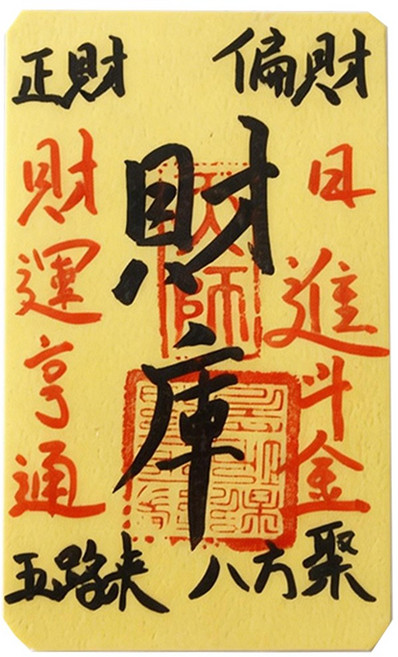 正財
偏財
日進斗金
財庫
財運亨通
五路来
八方聚
天師